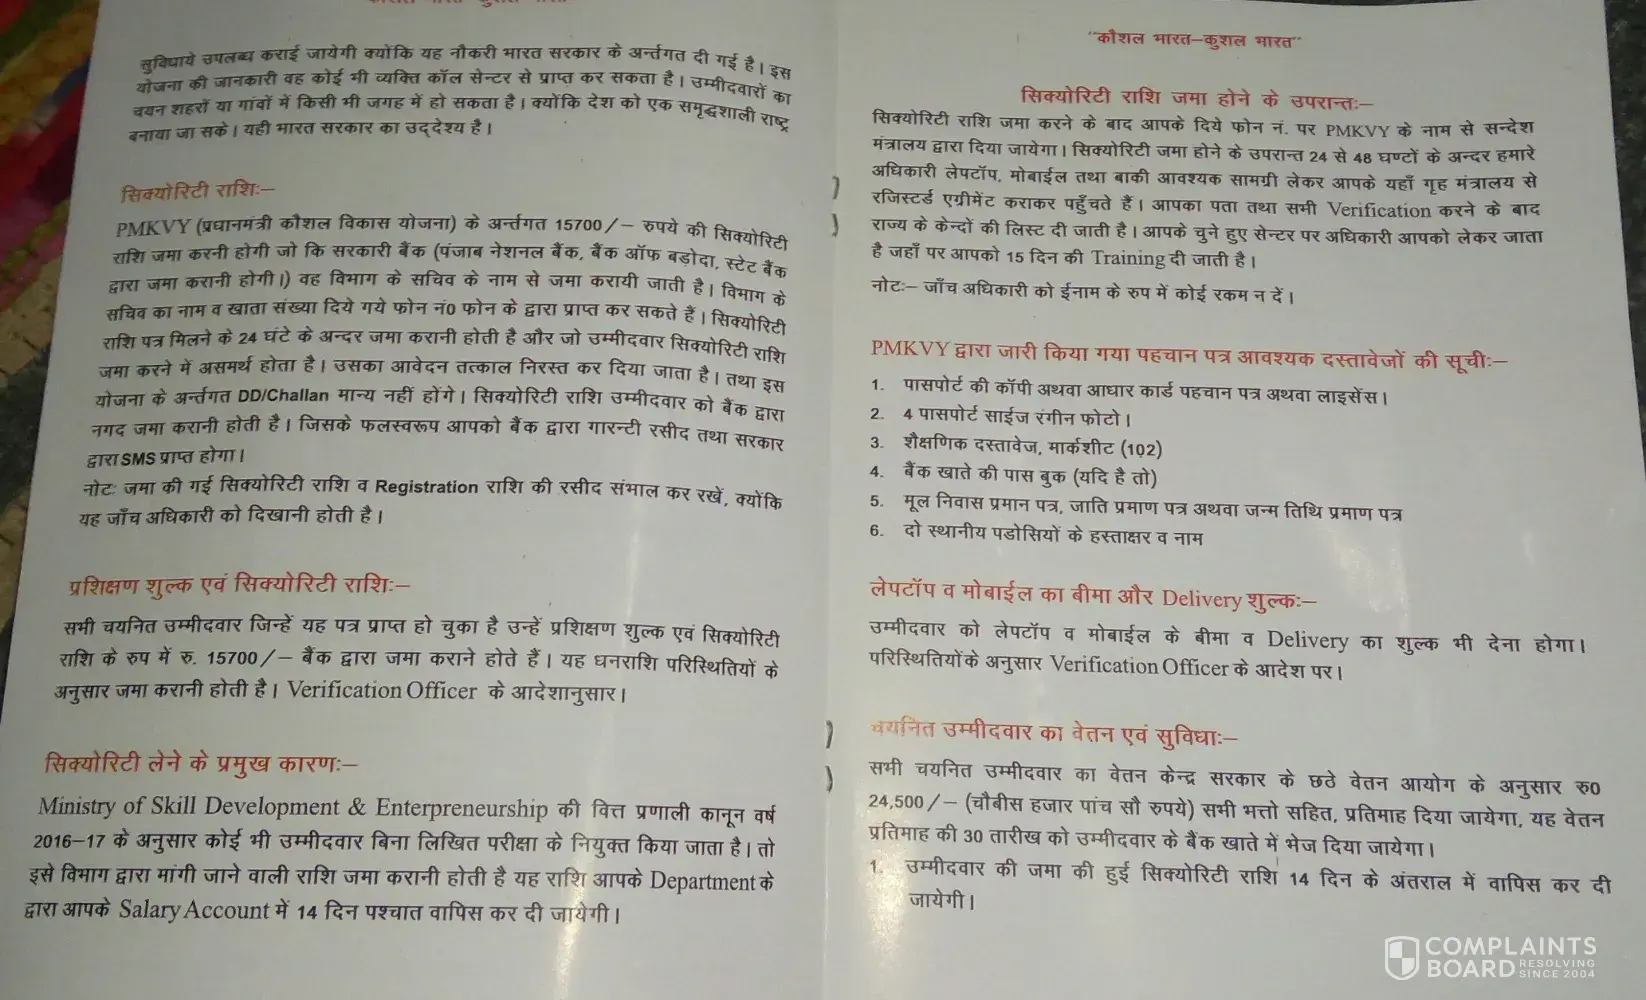 सुविधाये उपलब्ध कराई जायेगी क्योंकि यह नौकरी भारत सरकार के अर्न्तगत दी गई है। इस
योजना की जानकारी वह कोई भी व्यक्ति कॉल सेन्टर से प्राप्त कर सकता है। उम्मीदवारों का
चयन शहरों या गांवों में किसी भी जगह में हो सकता है। क्योंकि देश को एक समृद्धशाली राष्ट्र
बनाया जा सके। यही भारत सरकार का उद्देश्य है।
सिक्योरिटी राशिः–
PMKVY (प्रधानमंत्री कौशल विकास योजना) के अर्न्तगत 15700/– रुपये की सिक्योरिटी
राशि जमा करनी होगी जो कि सरकारी बैंक (पंजाब नेशनल बैंक, बैंक ऑफ बड़ोदा, स्टेट बैंक
द्वारा जमा करानी होगी।) वह विभाग के सचिव के नाम से जमा करायी जाती है। विभाग के
सचिव का नाम व खाता संख्या दिये गये फोन नं0 फोन के द्वारा प्राप्त कर सकते हैं। सिक्योरिटी
राशि पत्र मिलने के 24 घंटे के अन्दर जमा करानी होती है और जो उम्मीदवार सिक्योरिटी राशि
जमा करने में असमर्थ होता है। उसका आवेदन तत्काल निरस्त कर दिया जाता है। तथा इस
योजना के अर्न्तगत DD/Challan मान्य नहीं होंगे। सिक्योरिटी राशि उम्मीदवार को बैंक द्वारा
नगद जमा करानी होती है। जिसके फलस्वरूप आपको बैंक द्वारा गारन्टी रसीद तथा सरकार
द्वारा SMS प्राप्त होगा।
नोटः जमा की गई सिक्योरिटी राशि व Registration राशि की रसीद संभाल कर रखें, क्योंकि
यह जाँच अधिकारी को दिखानी होती है।
प्रशिक्षण शुल्क एवं सिक्योरिटी राशिः–
सभी चयनित उम्मीदवार जिन्हें यह पत्र प्राप्त हो चुका है उन्हें प्रशिक्षण शुल्क एवं सिक्योरिटी
राशि के रुप में रु. 15700/– बैंक द्वारा जमा कराने होते हैं। यह धनराशि परिस्थितियों के
अनुसार जमा करानी होती है। Verification Officer के आदेशानुसार।
सिक्योरिटी लेने के प्रमुख कारणः–
Ministry of Skill Development & Enterpreneurship की वित्त प्रणाली कानून वर्ष
2016–17 के अनुसार कोई भी उम्मीदवार बिना लिखित परीक्षा के नियुक्त किया जाता है। तो
इसे विभाग द्वारा मांगी जाने वाली राशि जमा करानी होती है यह राशि आपके Department के
द्वारा आपके Salary Account में 14 दिन पश्चात वापिस कर दी जायेगी।
"कौशल भारत–कुशल भारत"
सिक्योरिटी राशि जमा होने के उपरान्तः–
सिक्योरिटी राशि जमा करने के बाद आपके दिये फोन नं. पर PMKVY के नाम से सन्देश
मंत्रालय द्वारा दिया जायेगा। सिक्योरिटी जमा होने के उपरान्त 24 से 48 घण्टों के अन्दर हमारे
अधिकारी लेपटॉप, मोबाईल तथा बाकी आवश्यक सामग्री लेकर आपके यहाँ गृह मंत्रालय से
रजिस्टर्ड एग्रीमेंट कराकर पहुँचते हैं। आपका पता तथा सभी Verification करने के बाद
राज्य के केन्दों की लिस्ट दी जाती है। आपके चुने हुए सेन्टर पर अधिकारी आपको लेकर जाता
है जहाँ पर आपको 15 दिन की Training दी जाती है।
नोटः– जाँच अधिकारी को ईनाम के रुप में कोई रकम न दें।
PMKVY द्वारा जारी किया गया पहचान पत्र आवश्यक दस्तावेजों की सूचीः–
1. पासपोर्ट की कॉपी अथवा आधार कार्ड पहचान पत्र अथवा लाइसेंस।
2. 4 पासपोर्ट साईज रंगीन फोटो।
3. शैक्षणिक दस्तावेज, मार्कशीट (102)
4. बैंक खाते की पास बुक (यदि है तो)
5. मूल निवास प्रमान पत्र, जाति प्रमाण पत्र अथवा जन्म तिथि प्रमाण पत्र
6. दो स्थानीय पडोसियों के हस्ताक्षर व नाम
लेपटॉप व मोबाईल का बीमा और Delivery शुल्कः–
उम्मीदवार को लेपटॉप व मोबाईल के बीमा व Delivery का शुल्क भी देना होगा।
परिस्थितियों के अनुसार Verification Officer के आदेश पर।
चयनित उम्मीदवार का वेतन एवं सुविधाः–
सभी चयनित उम्मीदवार का वेतन केन्द्र सरकार के छठे वेतन आयोग के अनुसार रु0
24,500/– (चौबीस हजार पांच सौ रुपये) सभी भत्तो सहित, प्रतिमाह दिया जायेगा, यह वेतन
प्रतिमाह की 30 तारीख को उम्मीदवार के बैंक खाते में भेज दिया जायेगा।
1. उम्मीदवार की जमा की हुई सिक्योरिटी राशि 14 दिन के अंतराल में वापिस कर दी
जायेगी।
COMPLAINTS
BOARD RESOLVING SINCE 2004